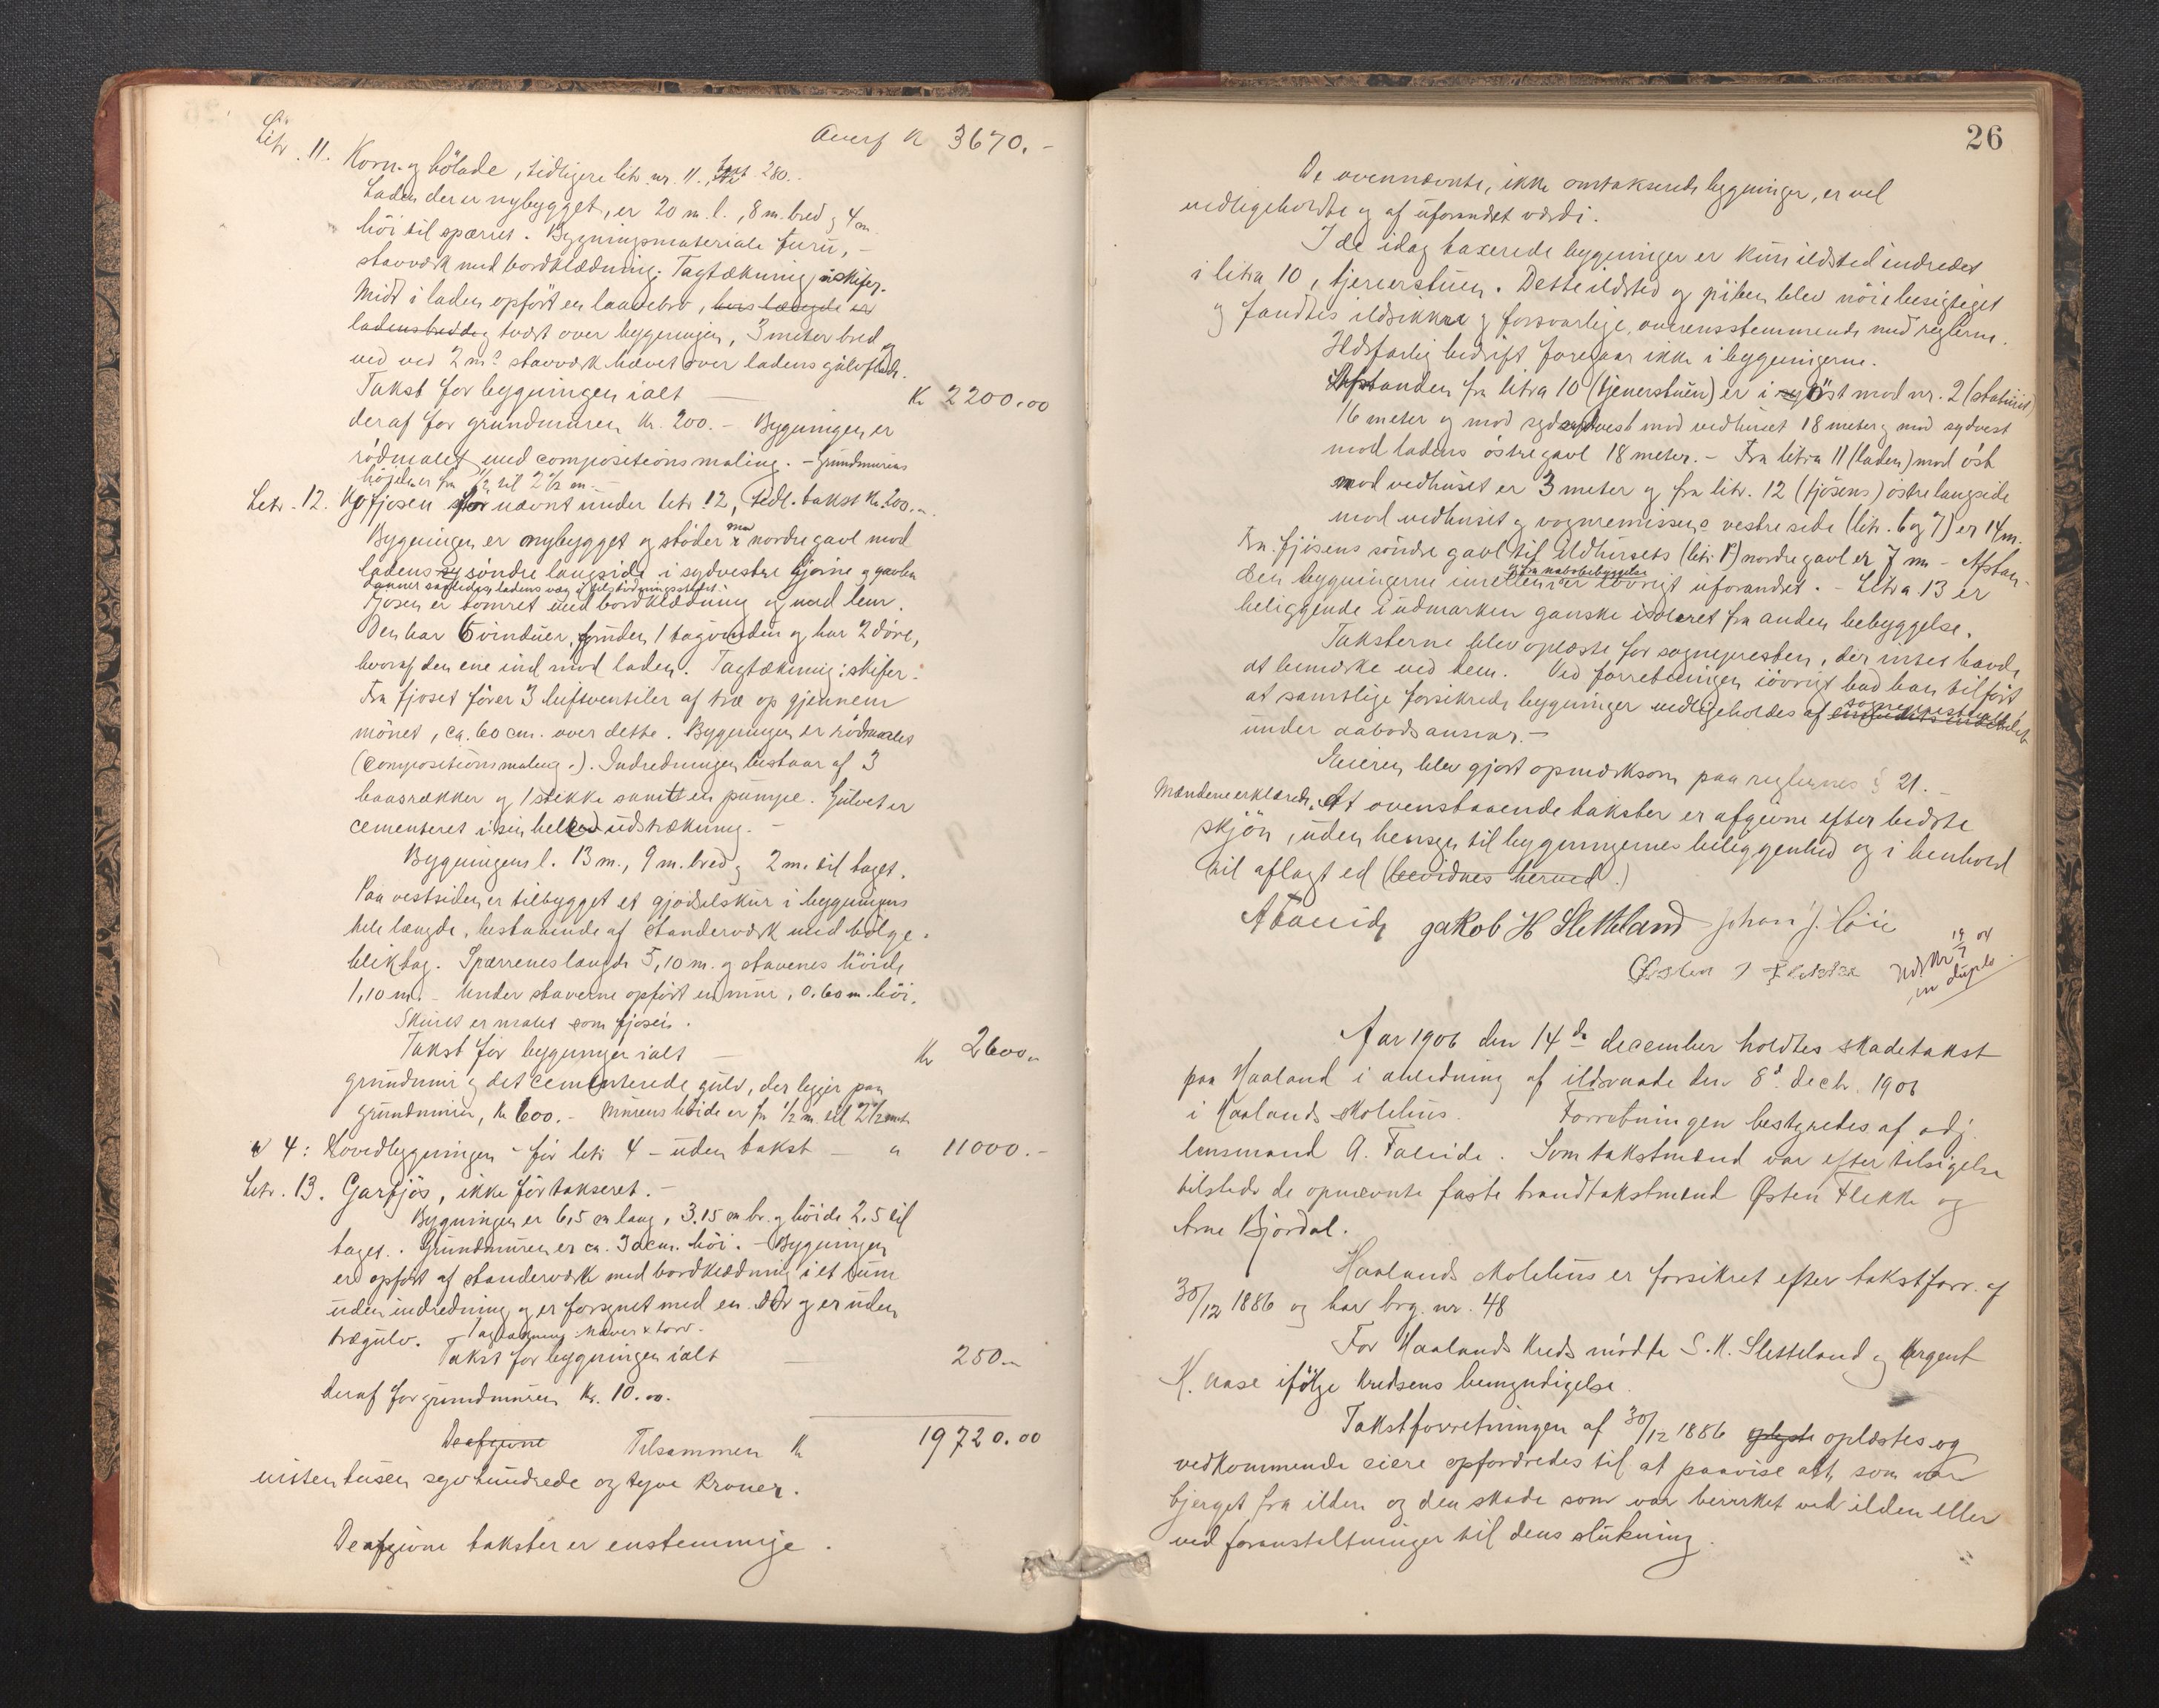 Overf Kr 3670.-
Litr. 11. Korn- og hölade, tidligere litr. nr. 11., takst 280.-
Laden der er nybygget, er 20 m. l., 8 m. bred og 4 m
höi til sparret. Bygningsmateriale furu, -
stavværk med bordklædning. Tagtækning: skifer.
Midt i laden opført en laavebro, hvis længde er
ladens bredde, tvært over bygningen, 3 meter bred og
ved 2 m? stavværk hævet over ladens gulvflade.
Takst for bygningen ialt — Kr 2200.00
deraf for grundmuren Kr. 200.- Bygningen er
rödmalet med compositionsmaling. - Grundmurens
höjde er fra ½ til 2½ m. -
Litr. 12. Kofjosen för nævnt under litr 12, tidl. takst Kr. 200.-
Bygningen er nybygget og stöder med nordre gavl mod
ladens söndre langside i sydvestre hjörne og gavlen
danner saaledes ladens væg i tilstödningsstedet.
Fjosen er tömret med bordklædning og med lem.
Den har 6 vinduer, foruden 1 tagvindu og har 2 döre,
hvoraf den ene ind mod laden. Tagtækning: skifer.
Fra fjoset förer 3 luftventiler af træ op gjennem
mönet, ca. 60 cm. over dette. Bygningen er rödmalet
(compositionsmaling.). Indredningen bestaar af 3
baasrækker og 1 stikke samt en pumpe. Gulvet er
cementeret i sin helhed udstrækning. -
Bygningens l. 13 m., 9 m. bred og 2 m. til taget.
Paa vestsiden er tilbygget et gjödselskur i bygningens
hele længde, bestaaende af standerværk med bölge-
bliktag. Sparrenes længde 5,10 m. og stavenes höide
1,10 m. - Under staverne opfört en mur, 0.60 m. höi.
Skuret er malet som fjosen.
Takst for bygningen ialt — Kr 2600.-
grundmur og det cementerede gulv, der ligger paa
grundmuren, Kr 600.- Murens höide er fra ½ m. til 2½ meter
" 4: Hovedbygningen - för litr 4 - uden takst — " 11000.-
Litr. 13. Garfjös, ikke för takseret. -
Bygningen er 6,5 m lang, 3.15 m br. og höide 2.5 til
taget. Grundmuren er ca. 30 cm. höi. - Bygningen
er opfört af standerværk med bordklædning i et rum
uden indredning og er forsynet med en dör og er uden
trægulv. Tagtækning næver & torv.
Takst for bygningen ialt — 250.-
deraf for grundmuren Kr. 10.00.
De afgivne Tilsammen Kr 19720.00
nitten tusen syv hundrede og tyve kroner.
De afgivne takster er enstemmige.
26
De ovennævnte, ikke omtakserede bygninger, er vel
vedligeholdte og af uforandret værdi.
I de idag taxerede bygninger er kun ildsted indredet
i litra 10, tjenerstuen. Dette ildsted og piben blev nöie besigtiget
og fandtes ildsikkre og forsvarlige, overensstemmende med reglerne.
Ildsfarlig bedrift foregaar ikke i bygningerne.
Afstanden fra litra 10 (tjenerstuen) er i öst mod nr. 2 (stabburet)
16 meter og mod sydvest mod vedhuset 18 meter og mod sydvest
mod ladens östre gavl 18 meter. - Fra litra 11 (laden) mod öst
mod vedhuset er 3 meter og fra litr. 12 (fjösens) östre langside
mod vedhuset og vognremissens vestre side (litr. 6 og 7) er 14 m.
Fra fjösens söndre gavl til ildhusets (litr. 8) nordre gavl er 7 m - Afstan-
den bygningerne imellem er iövrigt uforandret. - Litra 13 er
fra nabobebyggelse
beliggende i udmarken ganske isoleret fra anden bebyggelse.
Taksterne blev oplæste for sognepresten, der intet havde
at bemærke ved dem. Ved forretningen iövrigt bad han tilfört
at samtlige forsikrede bygninger vedligeholdes af sognepresten
under aabodsansvar. -
Eieren blev gjort opmærksom paa reglernes § 21. -
Mændene erklærede, At ovenstaaende takster er afgivne efter bedste
skjön, uden hensyn til bygningernes beliggenhed og i henhold
til aflagt ed (bevidnes herved.)
A Faleide Jakob H Sletteland Johan J. Höie
Østen J Flekke
Udskr 19/7 04
in duplo
Aar 1906 den 14de december holdtes skadetakst
paa Haaland i anledning af ildsvaade den 8d decbr. 1906
i Haalands skolehus. Forretningen bestyredes af adj.
lensmand A. Faleide. Som takstmænd var efter tilsigelse
tilstede de opnævnte faste brandtakstmænd Østen Flekke og
Arne Björdal.
Haalands skolehus er forsikret efter takstforr. af
30/12 1886 og har brg. nr. 48
For Haalands Kreds mödte S. K. Sletteland og
H. Aase ifölge Kredsens bemyndigelse.
Takstforretningen af 30/12 1886 oplæstes og
vedkommende eiere opfordredes til at paavise alt, som var
bjerget fra ilden og den skade som var bevirket ved ilden eller
ved foranstaltninger til dens slukning.